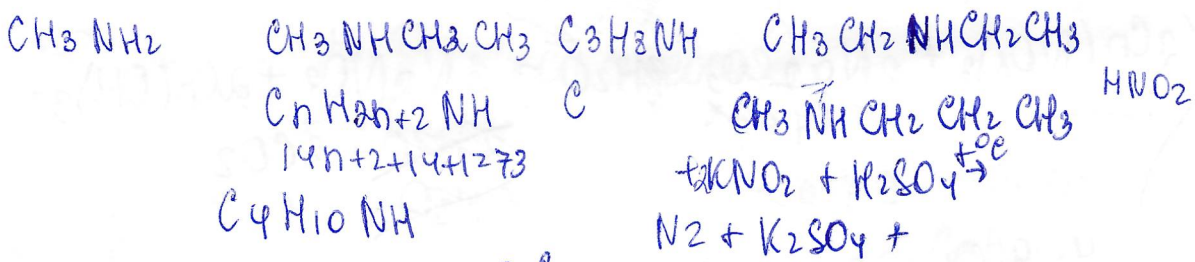 CH3 NH2 CH3 NH CH2 CH3 C3H8NH CH3 CH2 NH CH2 CH3
CnH2n+2 NH C CH3 NH CH2 CH2 CH3 HNO2
14n+2+14+1=73 +2KNO2 + H2SO4 t°C →
C4H10 NH N2 + K2SO4 +